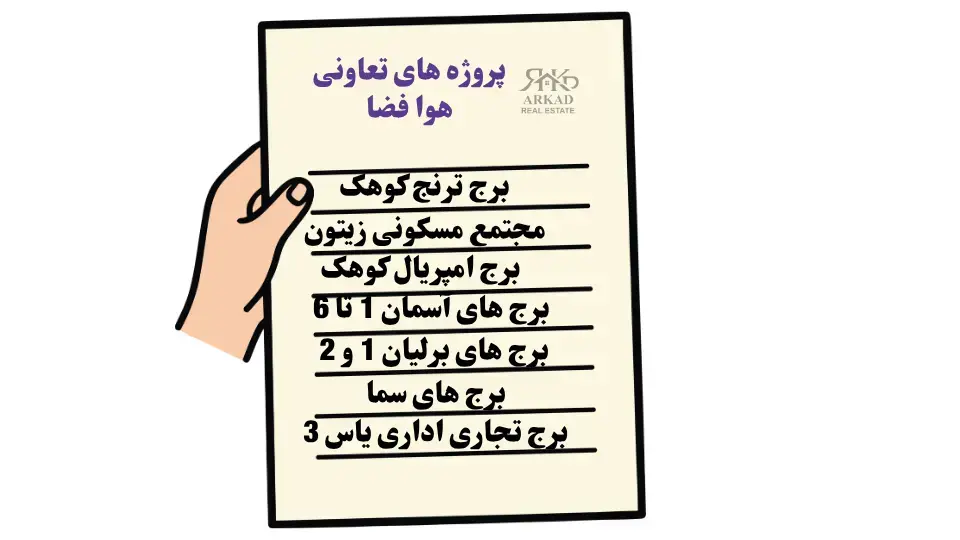 پروژه های تعاونی
هوا فضا
ARKAD
REAL ESTATE
برج ترنج کوهک
مجتمع مسکونی زیتون
برج امپریال کوهک
برج های آسمان 1 تا 6
برج های برلیان 1 و 2
برج های سما
برج تجاری اداری یاس 3